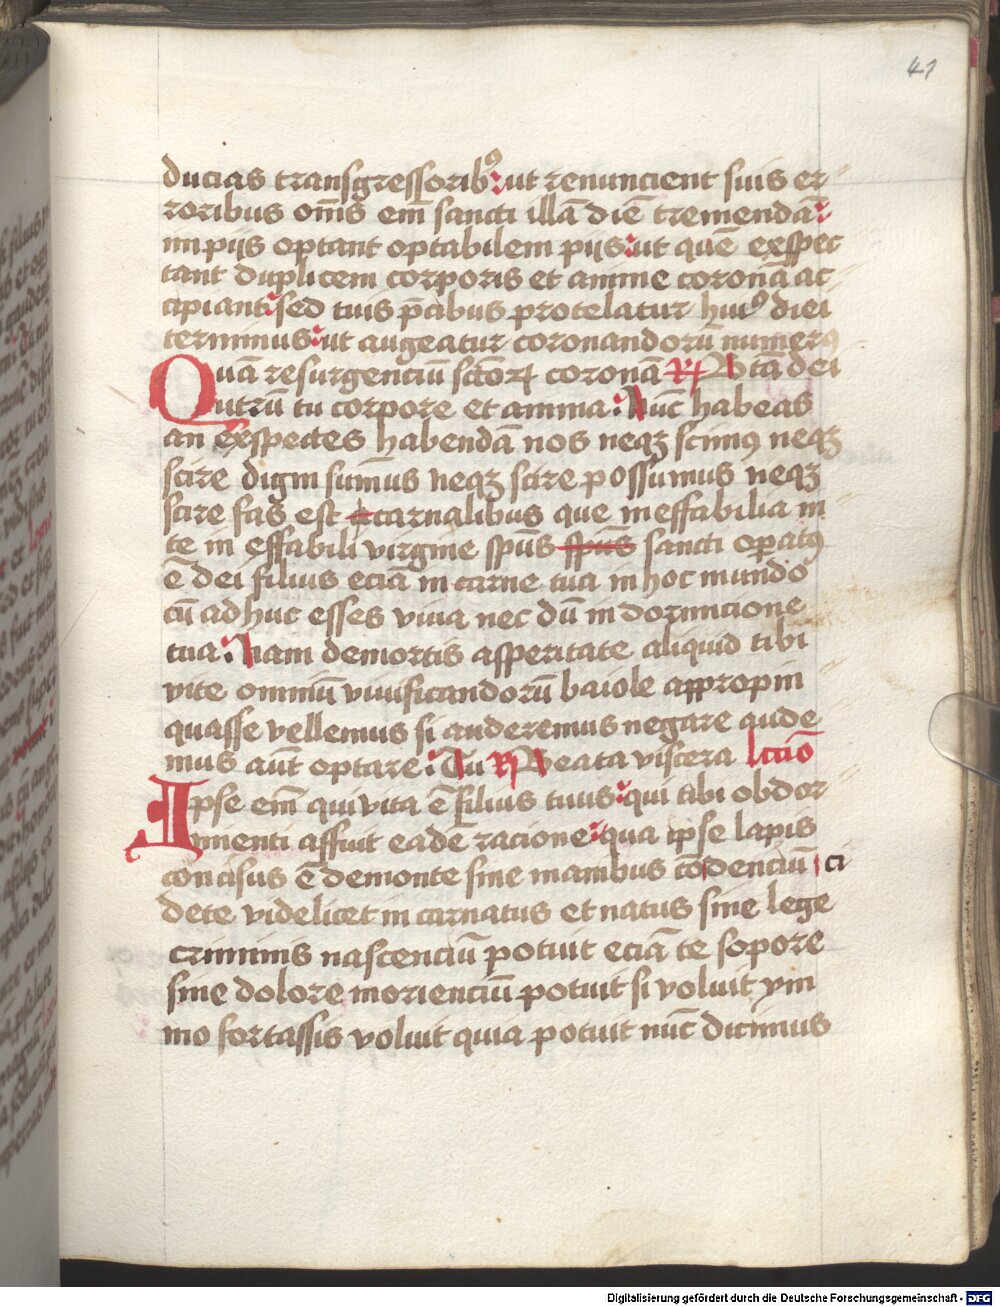 41
ducias transgressoribꝰ ut renuncient suis er
roribus om̄s em̄ sancti illā diē tremendā
impiis optant optabilem piis ut quē exspec
tant duplicem corporis et anime coronā ac
cipiant sed tuis p̄cibus protelatur huiꝰ diei
terminus ut augeatur coronandorū numerꝰ
Quā resurgenciū sc̄toꝝ coronā ℟ Btā dei
utrū tu corpore et anima Nūc habeas
an exspectes habendā nos neqꝫ scimꝰ neqꝫ
scire digni sumus neqꝫ scire possumus neqꝫ
scire fas est carnalibus que ineffabilia in
te in effabili virgine sp̄us sp̄us sancti opatꝰ
ē dei filius eciā in carne tua in hoc mundo
cū adhuc esses viua nec dū in dormicione
tua Nam de mortis asperitate aliquid tibi
vite omniū viuificandorū baiole appropin
quasse vellemus si auderemus negare aude
mus aūt optare Tu ℟ Beata viscera lccio
Ipse em̄ qui vita ē filius tuus qui tibi obdor
mienti affuit eadē racione qua ipse lapis
concisus ē de monte sine manibus cōdenciū ci
dete videlicet in carnatus et natus sine lege
criminis nascenciū potuit eciā te sopore
sine dolore morienciū potuit si voluit ym
mo fortassis voluit quia potuit nūc dicimus
Digitalisierung gefördert durch die Deutsche Forschungsgemeinschaft - DFG